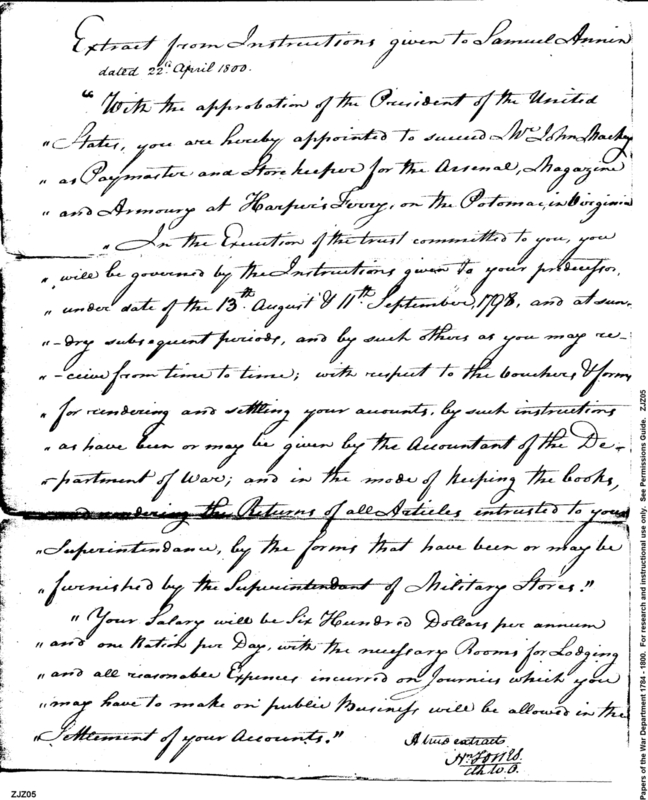 Extract from Instructions given to Samuel Annin
dated 22d. April 1800.
"With the approbation of the President of the United
"States, you are hereby appointed to succeed Mr. John Mackey
"as Paymaster and Store keeper for the Arsenal, Magazine
"and Armoury at Harper's Ferry, on the Potomac, in Virginia
"In the Execution of the trust committed to you, you
"will be governed by the Instructions given to your predecessor,
"under date of the 13th. August & 11th. September, 1798, and at sun-
"-dry subsequent periods, and by such others as you may re-
"-ceive from time to time; with respect to the vouchers & forms
"for rendering and settling your accounts, by such instructions
"as have been or may be given by the Accountant of the De-
"-partment of War; and in the mode of keeping the books,
and rendering the Returns of all Articles entrusted to your
"Superintendance, by the forms that have been or may be
"furnished by the Superintendant of Military Stores."
"Your Salary will be Six Hundred Dollars per annum
"and one Ration per Day, with the necessary Rooms for Lodging
"and all reasonable Expences incurred on Journies which you
"may have to make on public Business will be allowed in the
"Settlement of your Accounts."
A true extract
Jones
Ck. W. O.
ZJZ05
Papers of the War Department 1784 - 1800. For research and instructional use only. See Permissions Guide. ZJZ05